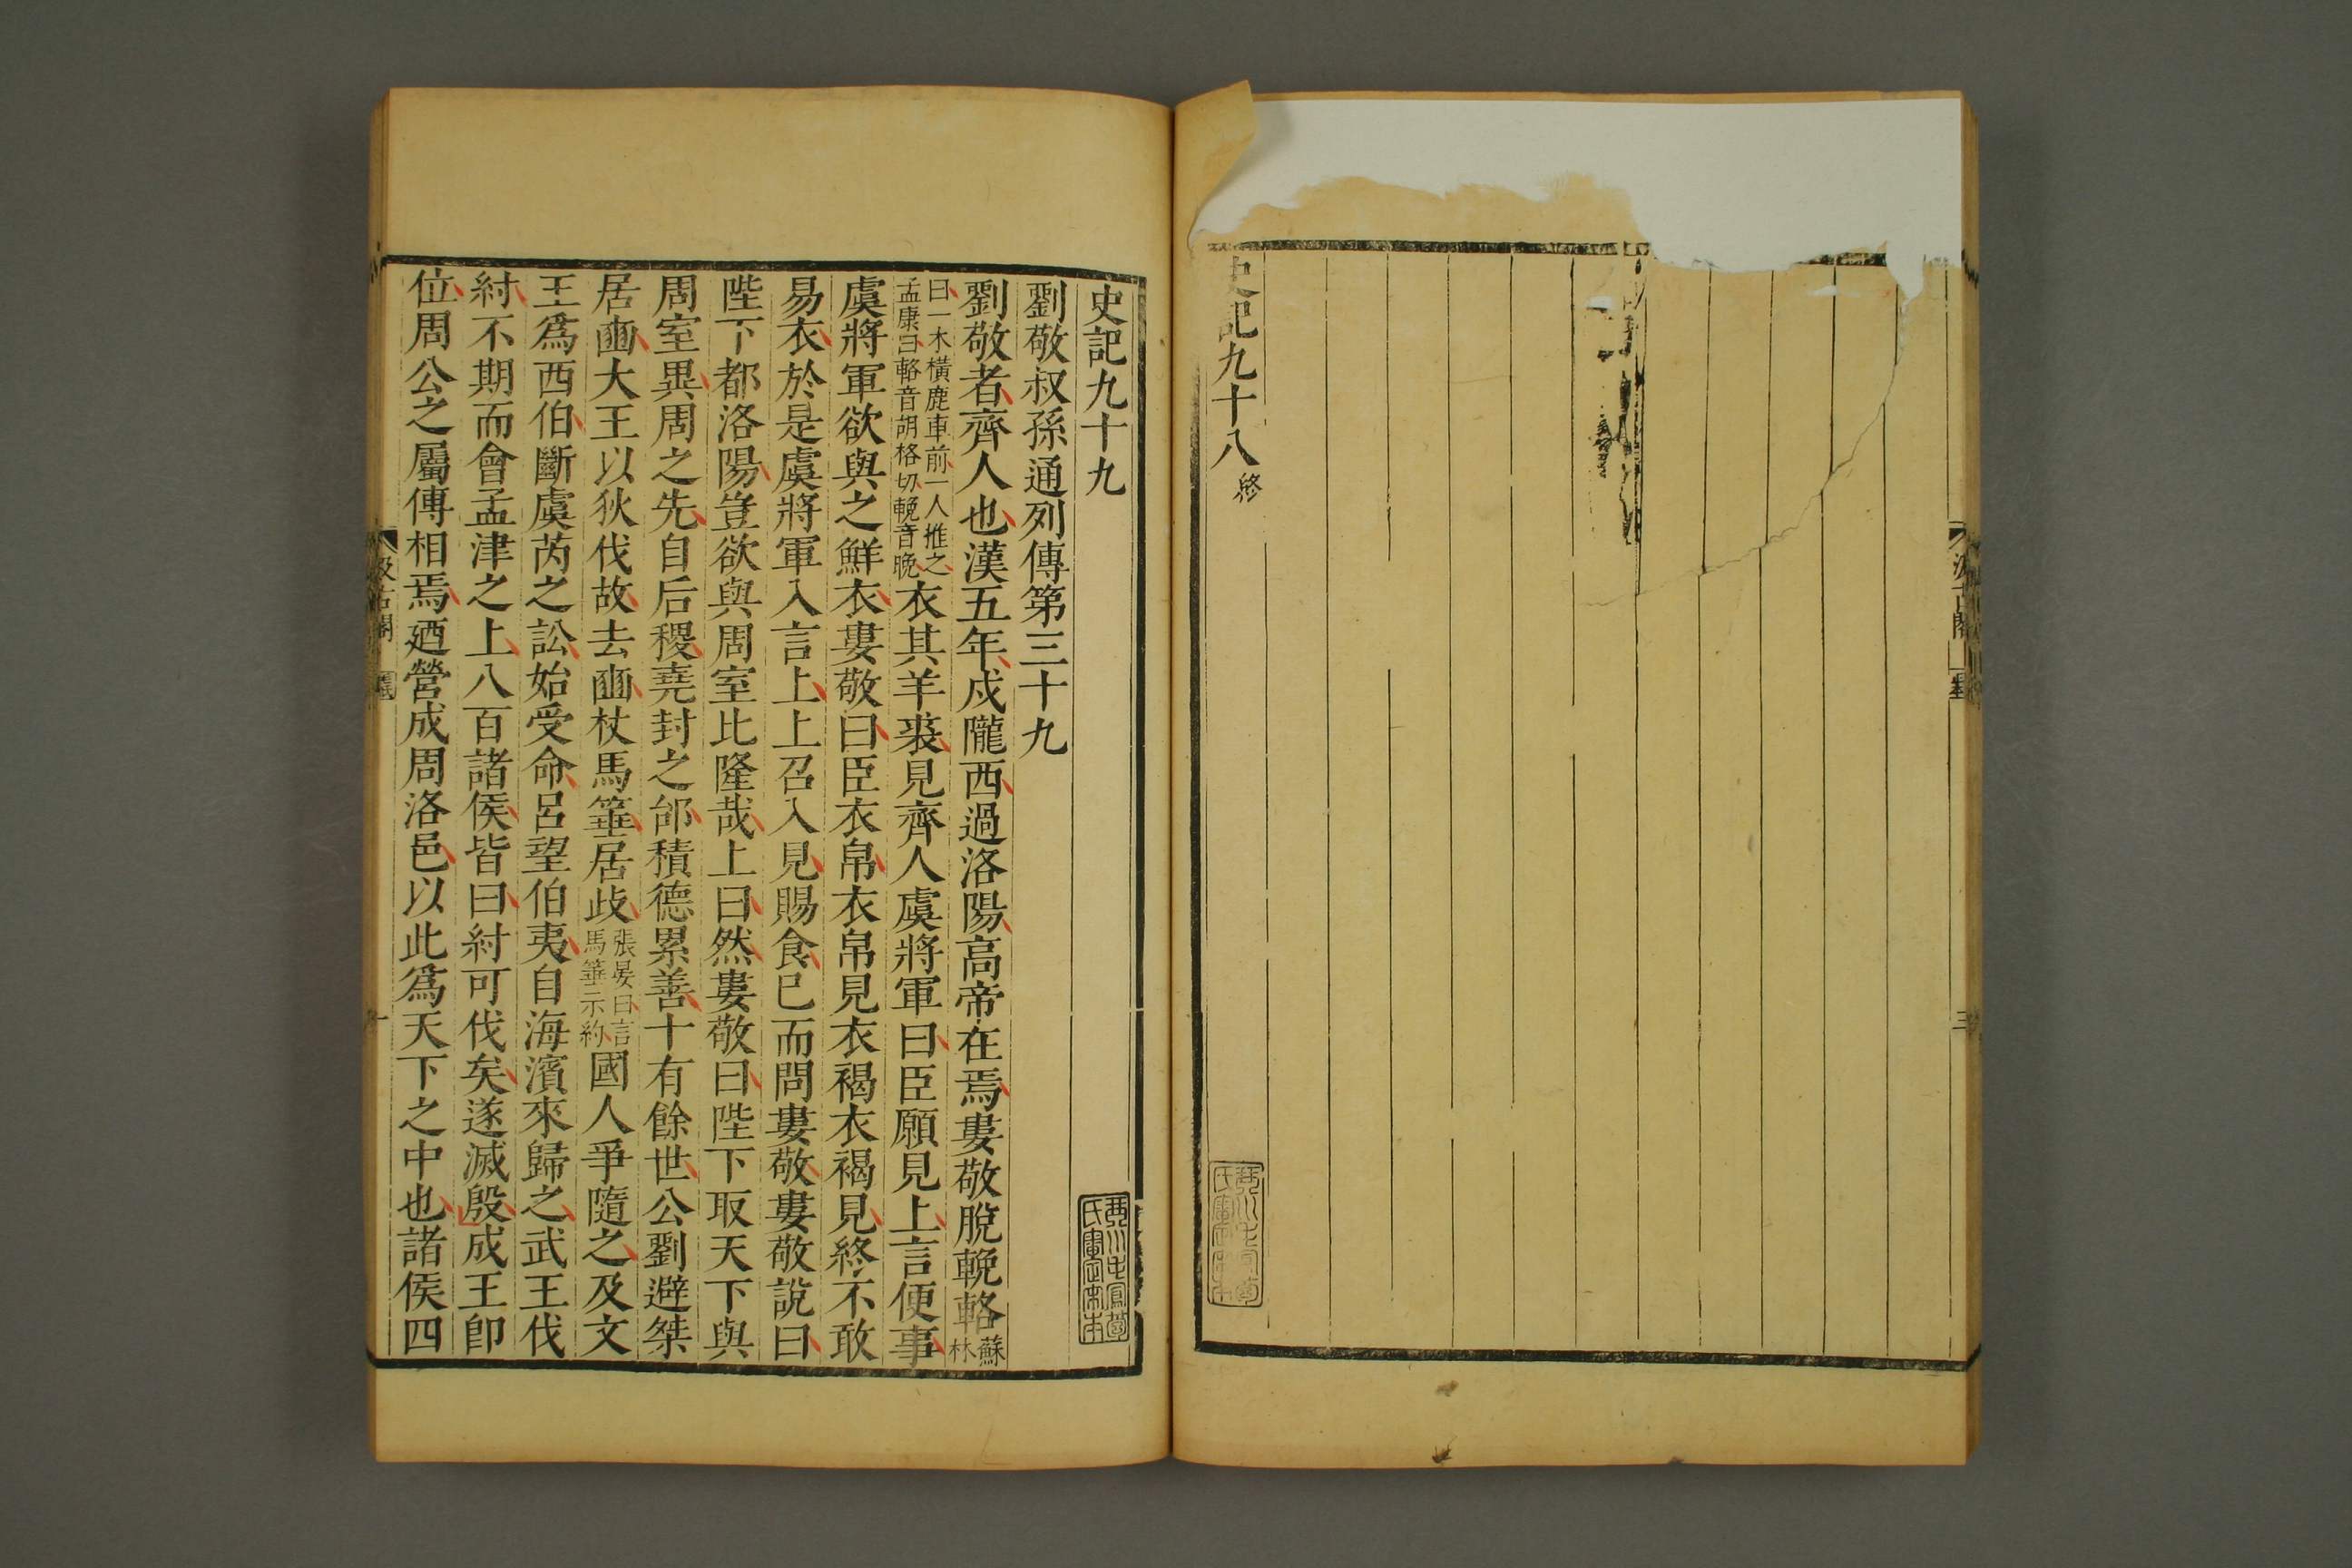 史記九十八 終
史記九十九
劉敬叔孫通列傳第三十九
劉敬者齊人也漢五年戍隴西過洛陽高帝在焉婁敬脫輓輅蘇林
曰一木橫鹿車前一人推之
孟康曰輅音胡格切輓音晚
衣其羊裘見齊人虞將軍曰臣願見上言便事
虞將軍欲與之鮮衣婁敬曰臣衣帛衣帛見衣褐衣褐見終不敢
易衣於是虞將軍入言上上召入見賜食已而問婁敬婁敬說曰
陛下都洛陽豈欲與周室比隆哉上曰然婁敬曰陛下取天下與
周室異周之先自后稷堯封之邰積德累善十有餘世公劉避桀
居豳大王以狄伐故去豳杖馬箠居歧
張晏曰言
馬箠示約
國人爭隨之及文
王為西伯斷虞芮之訟始受命呂望伯夷自海濱來歸之武王伐
紂不期而會孟津之上八百諸侯皆曰紂可伐矣遂滅殷成王卽
位周公之屬傳相焉廼營成周洛邑以此爲天下之中也諸侯四